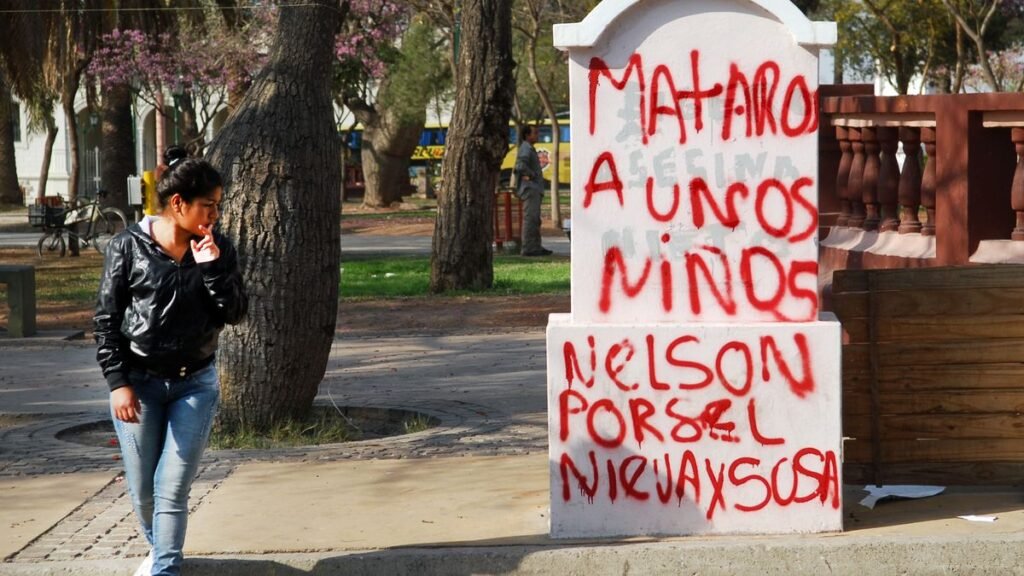 MATARO
A UNOS
NIÑOS
NELSON
PORSEL
NIEVAYSOSA